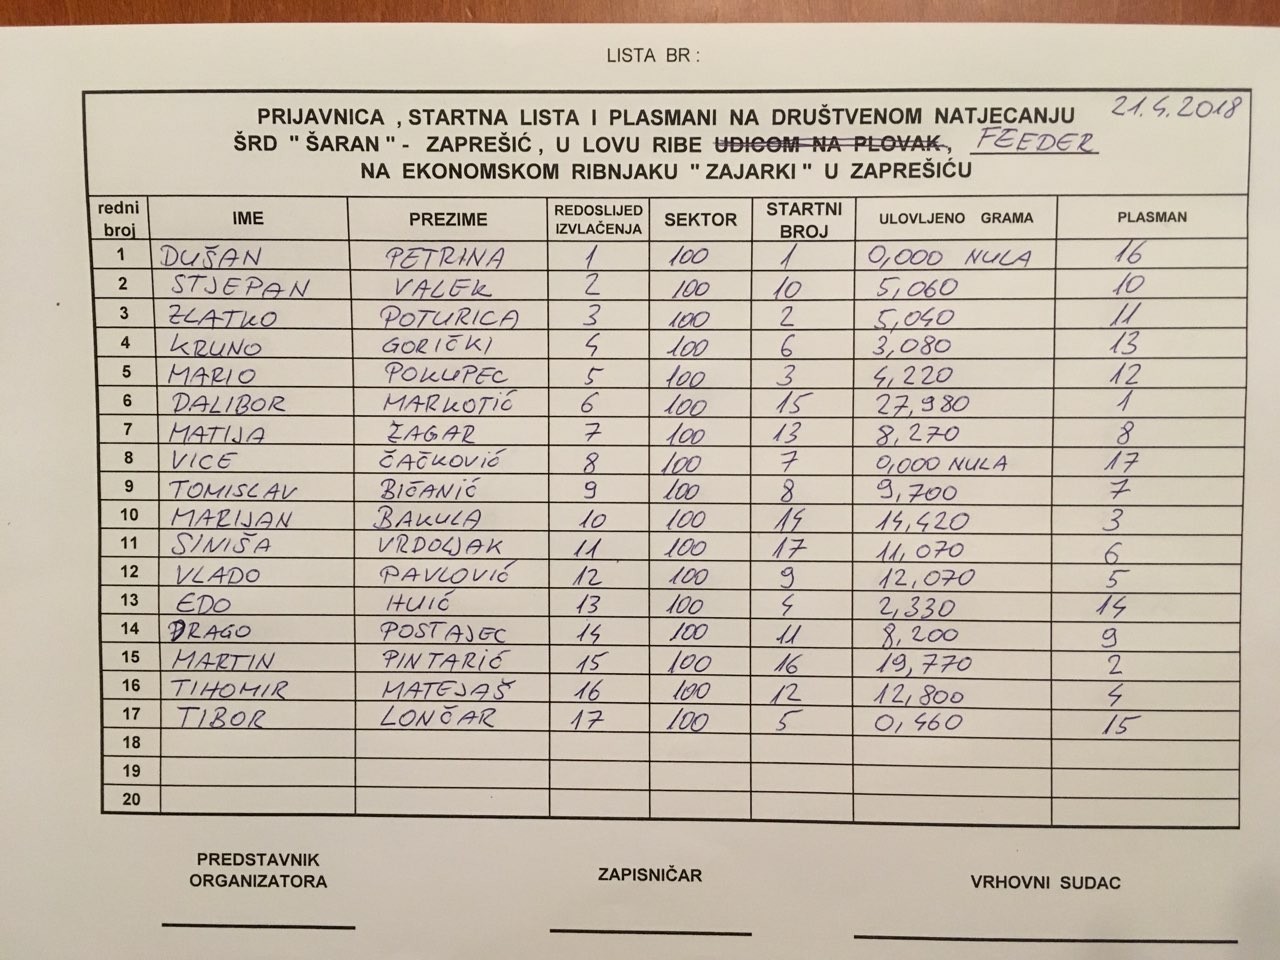 LISTA BR :
PRIJAVNICA , STARTNA LISTA I PLASMANI NA DRUŠTVENOM NATJECANJU 21.4.2018
ŠRD " ŠARAN " - ZAPREŠIĆ , U LOVU RIBE UDICOM NA PLOVAK , FEEDER
NA EKONOMSKOM RIBNJAKU " ZAJARKI " U ZAPREŠIĆU
redni broj IME PREZIME REDOSLIJED IZVLAČENJA SEKTOR STARTNI BROJ ULOVLJENO GRAMA PLASMAN
1 DUŠAN PETRINA 1 100 1 0,000 NULA 16
2 STJEPAN VALEK 2 100 10 5,060 10
3 ZLATKO POTURICA 3 100 2 5,040 11
4 KRUNO GORIČKI 4 100 6 3,080 13
5 MARIO POKUPEC 5 100 3 4,220 12
6 DALIBOR MARKOTIĆ 6 100 15 27,980 1
7 MATIJA ŽAGAR 7 100 13 8,270 8
8 VICE ČAČKOVIĆ 8 100 7 0,000 NULA 17
9 TOMISLAV BIČANIĆ 9 100 8 9,700 7
10 MARIJAN BAKULA 10 100 14 14,420 3
11 SINIŠA VRDOLJAK 11 100 17 11,070 6
12 VLADO PAVLOVIĆ 12 100 9 12,070 5
13 EDO HUIĆ 13 100 4 2,330 14
14 DRAGO POSTAJEC 14 100 11 8,200 9
15 MARTIN PINTARIĆ 15 100 16 19,770 2
16 TIHOMIR MATEJAŠ 16 100 12 12,800 4
17 TIBOR LONČAR 17 100 5 0,460 15
18
19
20
PREDSTAVNIK ORGANIZATORA ZAPISNIČAR VRHOVNI SUDAC